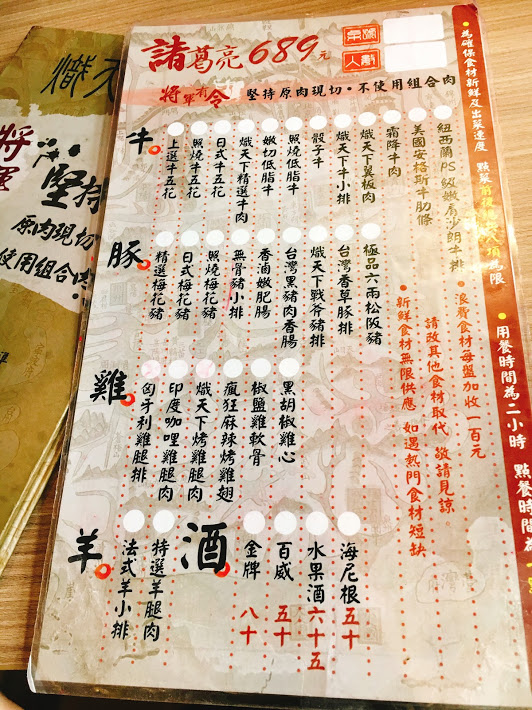 諸葛亮689元
將軍有令 堅持原肉現切・不使用組合肉
為確保食材新鮮及出菜速度
用餐時間為二小時
浪費食材每盤加收一百元
新鮮食材無限供應 如遇熱門食材短缺
請改其他食材取代 敬請見諒。
牛
紐西蘭PS級嫩肩沙朗牛排
美國安格斯牛肋條
霜降牛肉
熾天下翼板肉
熾天下牛小排
骰子牛
照燒低脂牛
嫩切低脂牛
熾天下精選牛肉
日式牛五花
照燒牛五花
上選牛五花
豚
極品六兩松阪豬
台灣香草豚排
熾天下戰斧豬排
台灣黑豬肉香腸
香滷嫩肥腸
無骨豬小排
照燒梅花豬
日式梅花豬
精選梅花豬
雞
黑胡椒雞心
椒鹽雞軟骨
瘋狂麻辣烤雞翅
熾天下烤雞腿肉
印度咖哩雞腿肉
匈牙利雞腿排
羊
特選羊腿肉
法式羊小排
酒
海尼根 五十
水果酒 六十五
百威 五十
金牌 八十
熾天
將軍
堅持
原肉現切
使用組合肉